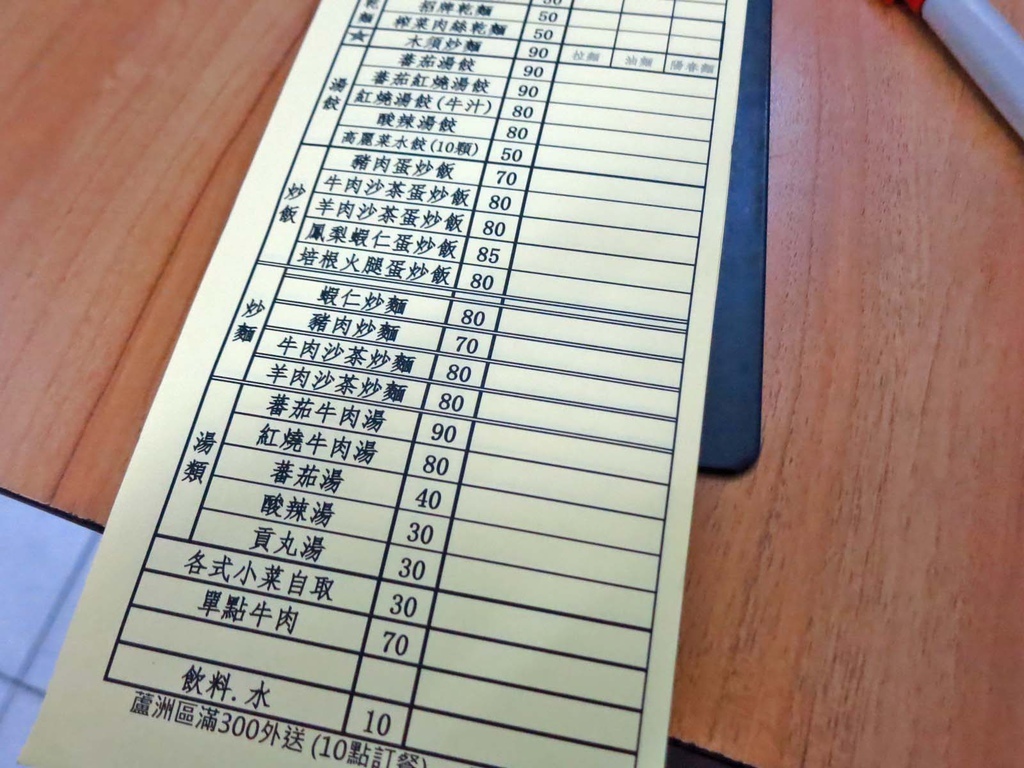 招牌乾麵 50
乾麵★ 榨菜肉絲乾麵 50
木須炒麵 90 拉麵 油麵 陽春麵
湯餃
蕃茄湯餃 90
蕃茄紅燒湯餃 90
紅燒湯餃(牛汁) 80
酸辣湯餃 80
高麗菜水餃(10顆) 50
炒飯
豬肉蛋炒飯 70
牛肉沙茶蛋炒飯 80
羊肉沙茶蛋炒飯 80
鳳梨蝦仁蛋炒飯 85
培根火腿蛋炒飯 80
炒麵
蝦仁炒麵 80
豬肉炒麵 70
牛肉沙茶炒麵 80
羊肉沙茶炒麵 80
湯類
蕃茄牛肉湯 90
紅燒牛肉湯 80
蕃茄湯 40
酸辣湯 30
貢丸湯 30
各式小菜自取 30
單點牛肉 70
飲料.水 10
蘆洲區滿300外送 (10點訂餐)